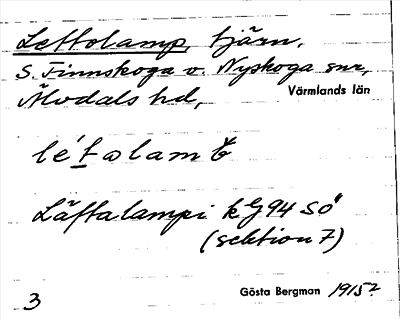 Lettolamp, tjärn,
S. Finnskoga o. Nyskoga snr,
Älvdals hd, Värmlands län
létalam
Lättalampi kg 94 SÖ
(sektion 7)
3 Gösta Bergman 1915?